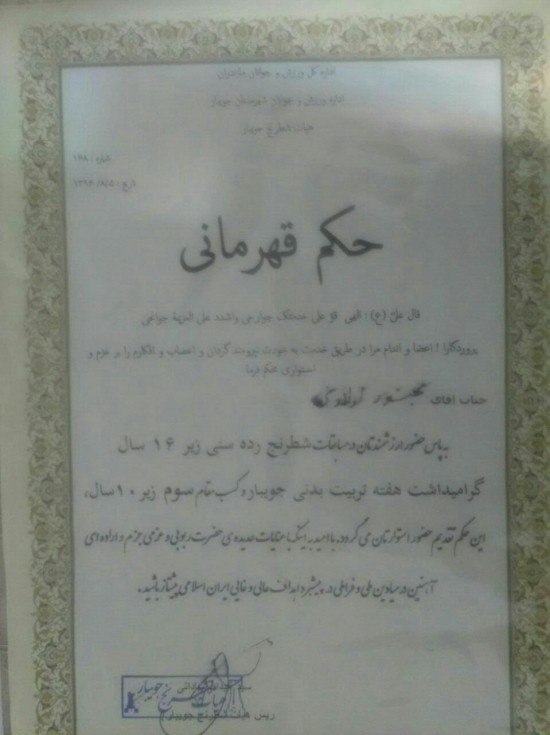 اداره کل ورزش و جوانان مازندران
اداره ورزش و جوانان شهرستان جویبار
هیات شطرنج جویبار
شماره : ۱۶۸
تاریخ :
حکم قهرمانی
قال علی (ع) : الهی قو علی خدمتک جوارحی واشدد علی العزیمة جوانحی
پروردگارا ! اعضا و اندام مرا در طریق خدمت به خودت نیرومند گردان و اعصاب و افکارم را بر عزم و
استواری محکم فرما
جناب آقای
به پاس حضور ارزشمندتان در مسابقات شطرنج رده سنی زیر ۱۶ سال
گرامیداشت هفته تربیت بدنی جویبار و کسب مقام سوم زیر ۱۰ سال،
این حکم تقدیم حضور استوارتان می گردد. با امید به اینکه با عنایات عدیده ی حضرت ربوبی و عزمی جزم و اراده ای
آهنین در میادین ملی و فراملی در پیشبرد اهداف عالی و غایی ایران اسلامی پیشتاز باشید.
هیات شطرنج جویبار
رییس هیات شطرنج جویبار